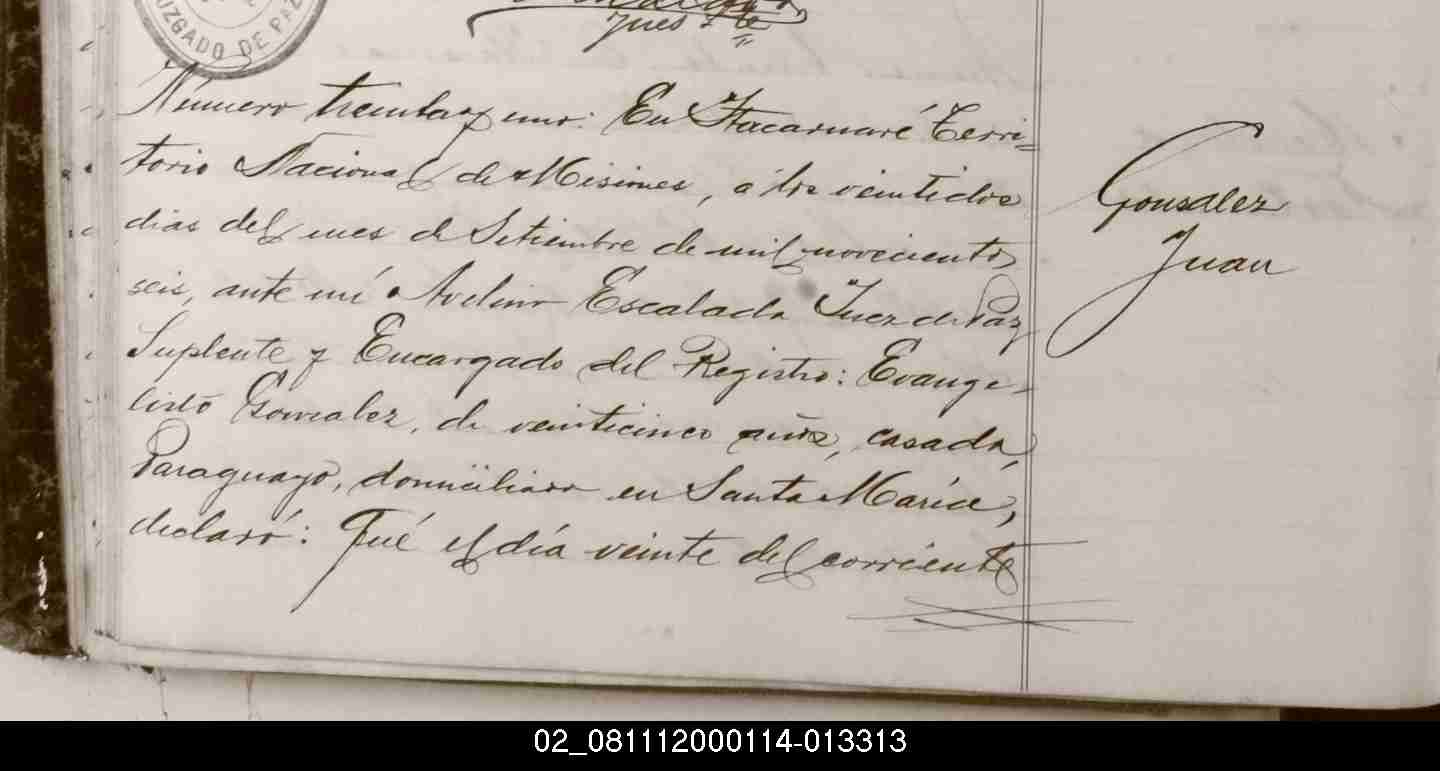 JUZGADO DE PAZ
Juez
Número treinta y uno: En Itacaruaré Terri=
torio Nacional de Misiones, a los veintidos
dias del mes de Setiembre de mil novecientos
seis, ante mí Avelino Escalada Juez de Paz
Suplente y Encargado del Registro: Evange-
listo Gonzalez, de veinticinco años, casado,
Paraguayo, domiciliado en Santa María,
declaró: Qué el día veinte del corriente
Gonzalez
Juan
02_081112000114-013313